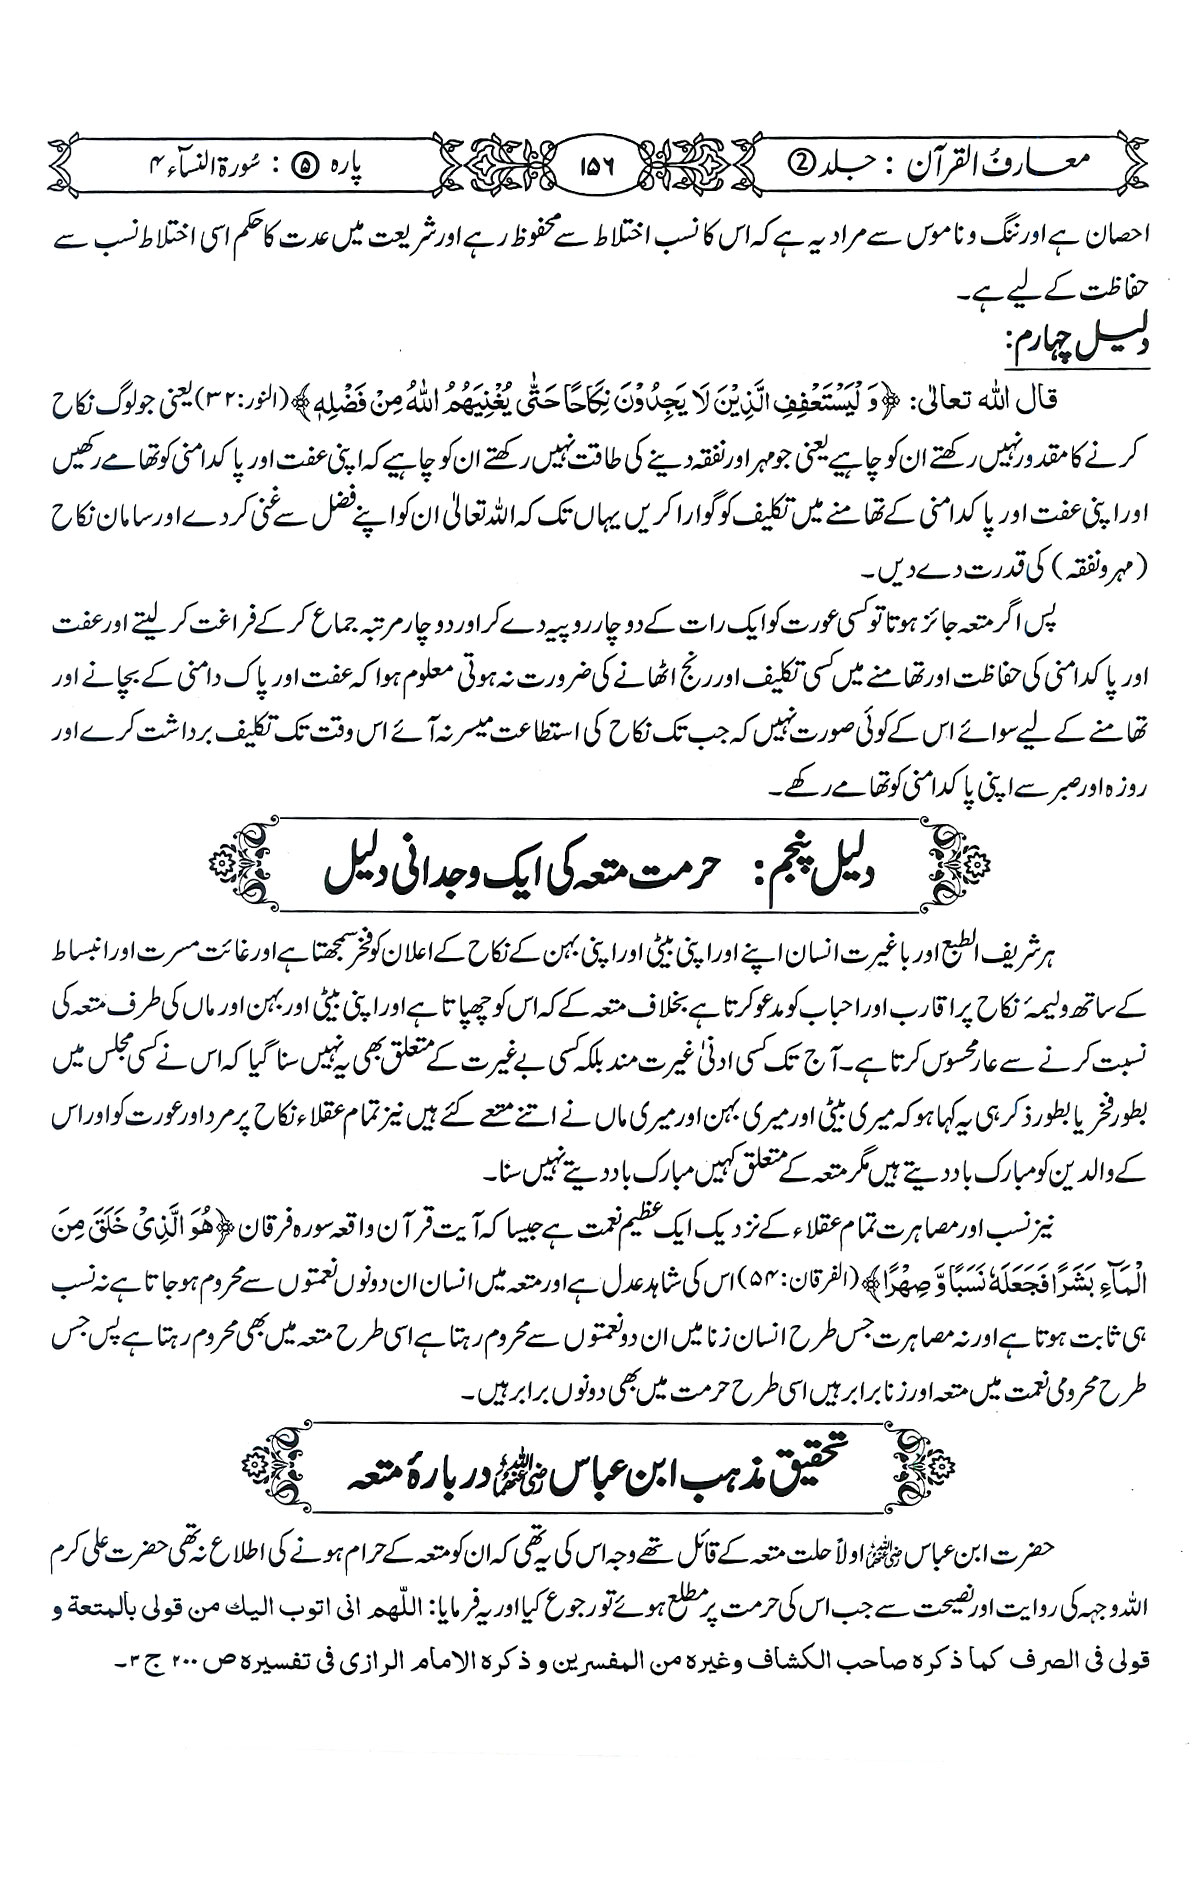 معارفُ القرآن : جلد ②
۱۵۶
پارہ ⑤ : سُورۃ النسآء ۴
احصان ہے اور ننگ و ناموس سے مراد یہ ہے کہ اس کا نسب اختلاط سے محفوظ رہے اور شریعت میں عدت کا حکم اسی اختلاط نسب سے
حفاظت کے لیے ہے۔
دلیل چہارم:
قال اللہ تعالیٰ: ﴿وَلْيَسْتَعْفِفِ الَّذِيْنَ لَا يَجِدُوْنَ نِكَاحًا حَتّٰى يُغْنِيَهُمُ اللّٰهُ مِنْ فَضْلِهٖ﴾ (النور: ۳۲) یعنی جو لوگ نکاح
کرنے کا مقدور نہیں رکھتے ان کو چاہیے یعنی جو مہر اور نفقہ دینے کی طاقت نہیں رکھتے ان کو چاہیے کہ اپنی عفت اور پاکدامنی کو تھامے رکھیں
اور اپنی عفت اور پاکدامنی کے تھامنے میں تکلیف کو گوارا کریں یہاں تک کہ اللہ تعالیٰ ان کو اپنے فضل سے غنی کر دے اور سامان نکاح
(مہر و نفقہ) کی قدرت دے دیں۔
پس اگر متعہ جائز ہوتا تو کسی عورت کو ایک رات کے دو چار روپیہ دے کر اور دو چار مرتبہ جماع کر کے فراغت کر لیتے اور عفت
اور پاکدامنی کی حفاظت اور تھامنے میں کسی تکلیف اور رنج اٹھانے کی ضرورت نہ ہوتی معلوم ہوا کہ عفت اور پاک دامنی کے بچانے اور
تھامنے کے لیے سوائے اس کے کوئی صورت نہیں کہ جب تک نکاح کی استطاعت میسر نہ آئے اس وقت تک تکلیف برداشت کرے اور
روزہ اور صبر سے اپنی پاکدامنی کو تھامے رکھے۔
دلیل پنجم: حرمت متعہ کی ایک وجدانی دلیل
ہر شریف الطبع اور باغیرت انسان اپنے اور اپنی بیٹی اور اپنی بہن کے نکاح کے اعلان کو فخر سمجھتا ہے اور غائت مسرت اور انبساط
کے ساتھ ولیمۂ نکاح پر اقارب اور احباب کو مدعو کرتا ہے بخلاف متعہ کے کہ اس کو چھپاتا ہے اور اپنی بیٹی اور بہن اور ماں کی طرف متعہ کی
نسبت کرنے سے عار محسوس کرتا ہے۔ آج تک کسی ادنیٰ غیرت مند بلکہ کسی بے غیرت کے متعلق بھی یہ نہیں سنا گیا کہ اس نے کسی مجلس میں
بطور فخر یا بطور ذکر ہی یہ کہا ہو کہ میری بیٹی اور میری بہن اور میری ماں نے اتنے متعے کئے ہیں نیز تمام عقلاء نکاح پر مرد اور عورت کو اور اس
کے والدین کو مبارک باد دیتے ہیں مگر متعہ کے متعلق کہیں مبارک باد دیتے نہیں سنا۔
نیز نسب اور مصاہرت تمام عقلاء کے نزدیک ایک عظیم نعمت ہے جیسا کہ آیت قرآن واقعہ سورہ فرقان ﴿هُوَ الَّذِيْ خَلَقَ مِنَ
الْمَآءِ بَشَرًا فَجَعَلَهٗ نَسَبًا وَّ صِهْرًا﴾ (الفرقان: ۵۴) اس کی شاہد عدل ہے اور متعہ میں انسان ان دونوں نعمتوں سے محروم ہو جاتا ہے نہ نسب
ہی ثابت ہوتا ہے اور نہ مصاہرت جس طرح انسان زنا میں ان دو نعمتوں سے محروم رہتا ہے اسی طرح متعہ میں بھی محروم رہتا ہے پس جس
طرح محرومی نعمت میں متعہ اور زنا برابر ہیں اسی طرح حرمت میں بھی دونوں برابر ہیں۔
تحقیق مذہب ابن عباس رضی اللہ عنہما دربارۂ متعہ
حضرت ابن عباس رضی اللہ عنہما اولاً حلت متعہ کے قائل تھے وجہ اس کی یہ تھی کہ ان کو متعہ کے حرام ہونے کی اطلاع نہ تھی حضرت علی کرم
اللہ وجہہ کی روایت اور نصیحت سے جب اس کی حرمت پر مطلع ہوئے تو رجوع کیا اور یہ فرمایا: اللّٰهم انى اتوب اليك من قولى بالمتعة و
قولى فى الصرف كما ذكره صاحب الكشاف وغيره من المفسرين و ذكره الامام الرازى فى تفسيره ص ۲۰۰ ج ۳۔